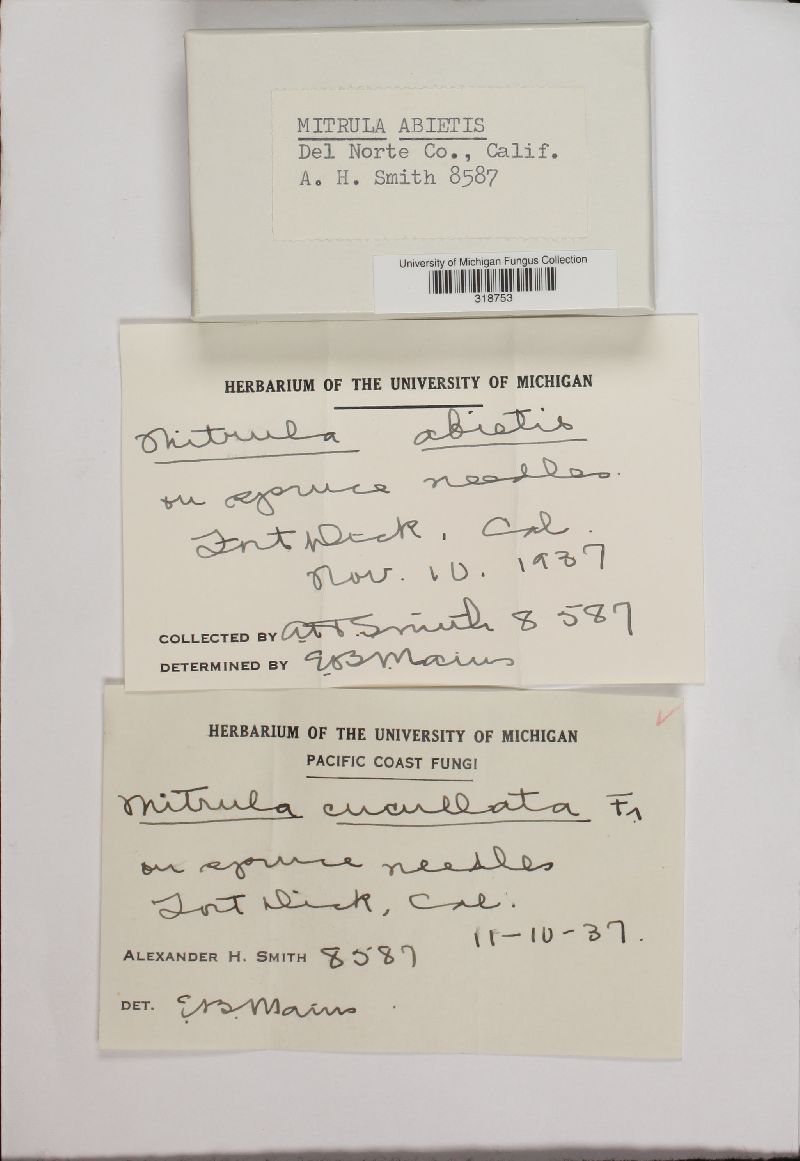 MITRULA ABIETIS
Del Norte Co., Calif.
A. H. Smith 8587
University of Michigan Fungus Collection
318753
HERBARIUM OF THE UNIVERSITY OF MICHIGAN
Mitrula abietis
on spruce needles.
Fort Dick, Cal.
Nov. 10. 1937
COLLECTED BY AH Smith 8587
DETERMINED BY EB Mains
HERBARIUM OF THE UNIVERSITY OF MICHIGAN
PACIFIC COAST FUNGI
Mitrula cucullata Fr
on spruce needles
Fort Dick, Cal.
11-10-37.
ALEXANDER H. SMITH 8587
DET. E.B. Mains